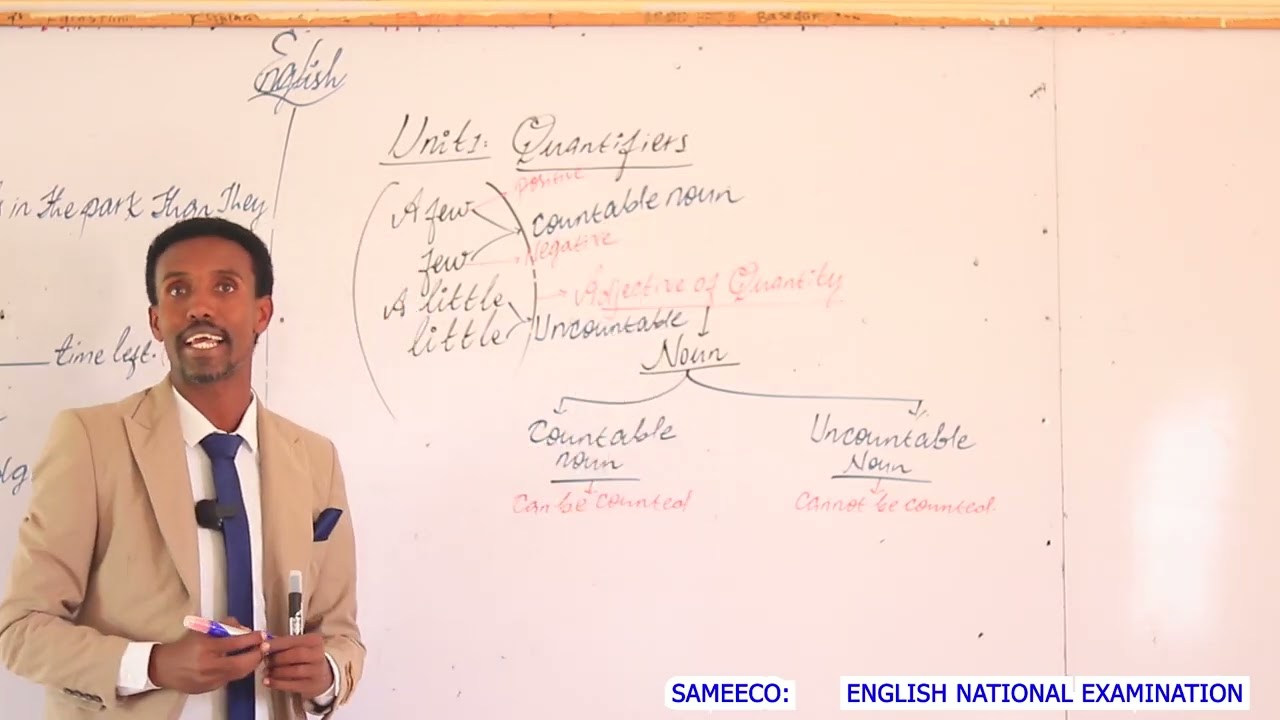 English
in the park than they
time left.
Unit1: Quantifiers
A few
positive
countable noun
few
Negative
A little
Adjective of Quantity
little
Uncountable
Noun
Countable
noun
can be counted
Uncountable
Noun
cannot be counted.
SAMEECO: ENGLISH NATIONAL EXAMINATION